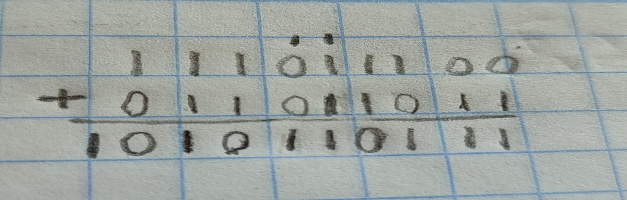 1 1 1 0 1 1 1 0 0
+ 0 1 1 0 1 1 0 1 1
1 0 1 0 1 1 0 1 1 1